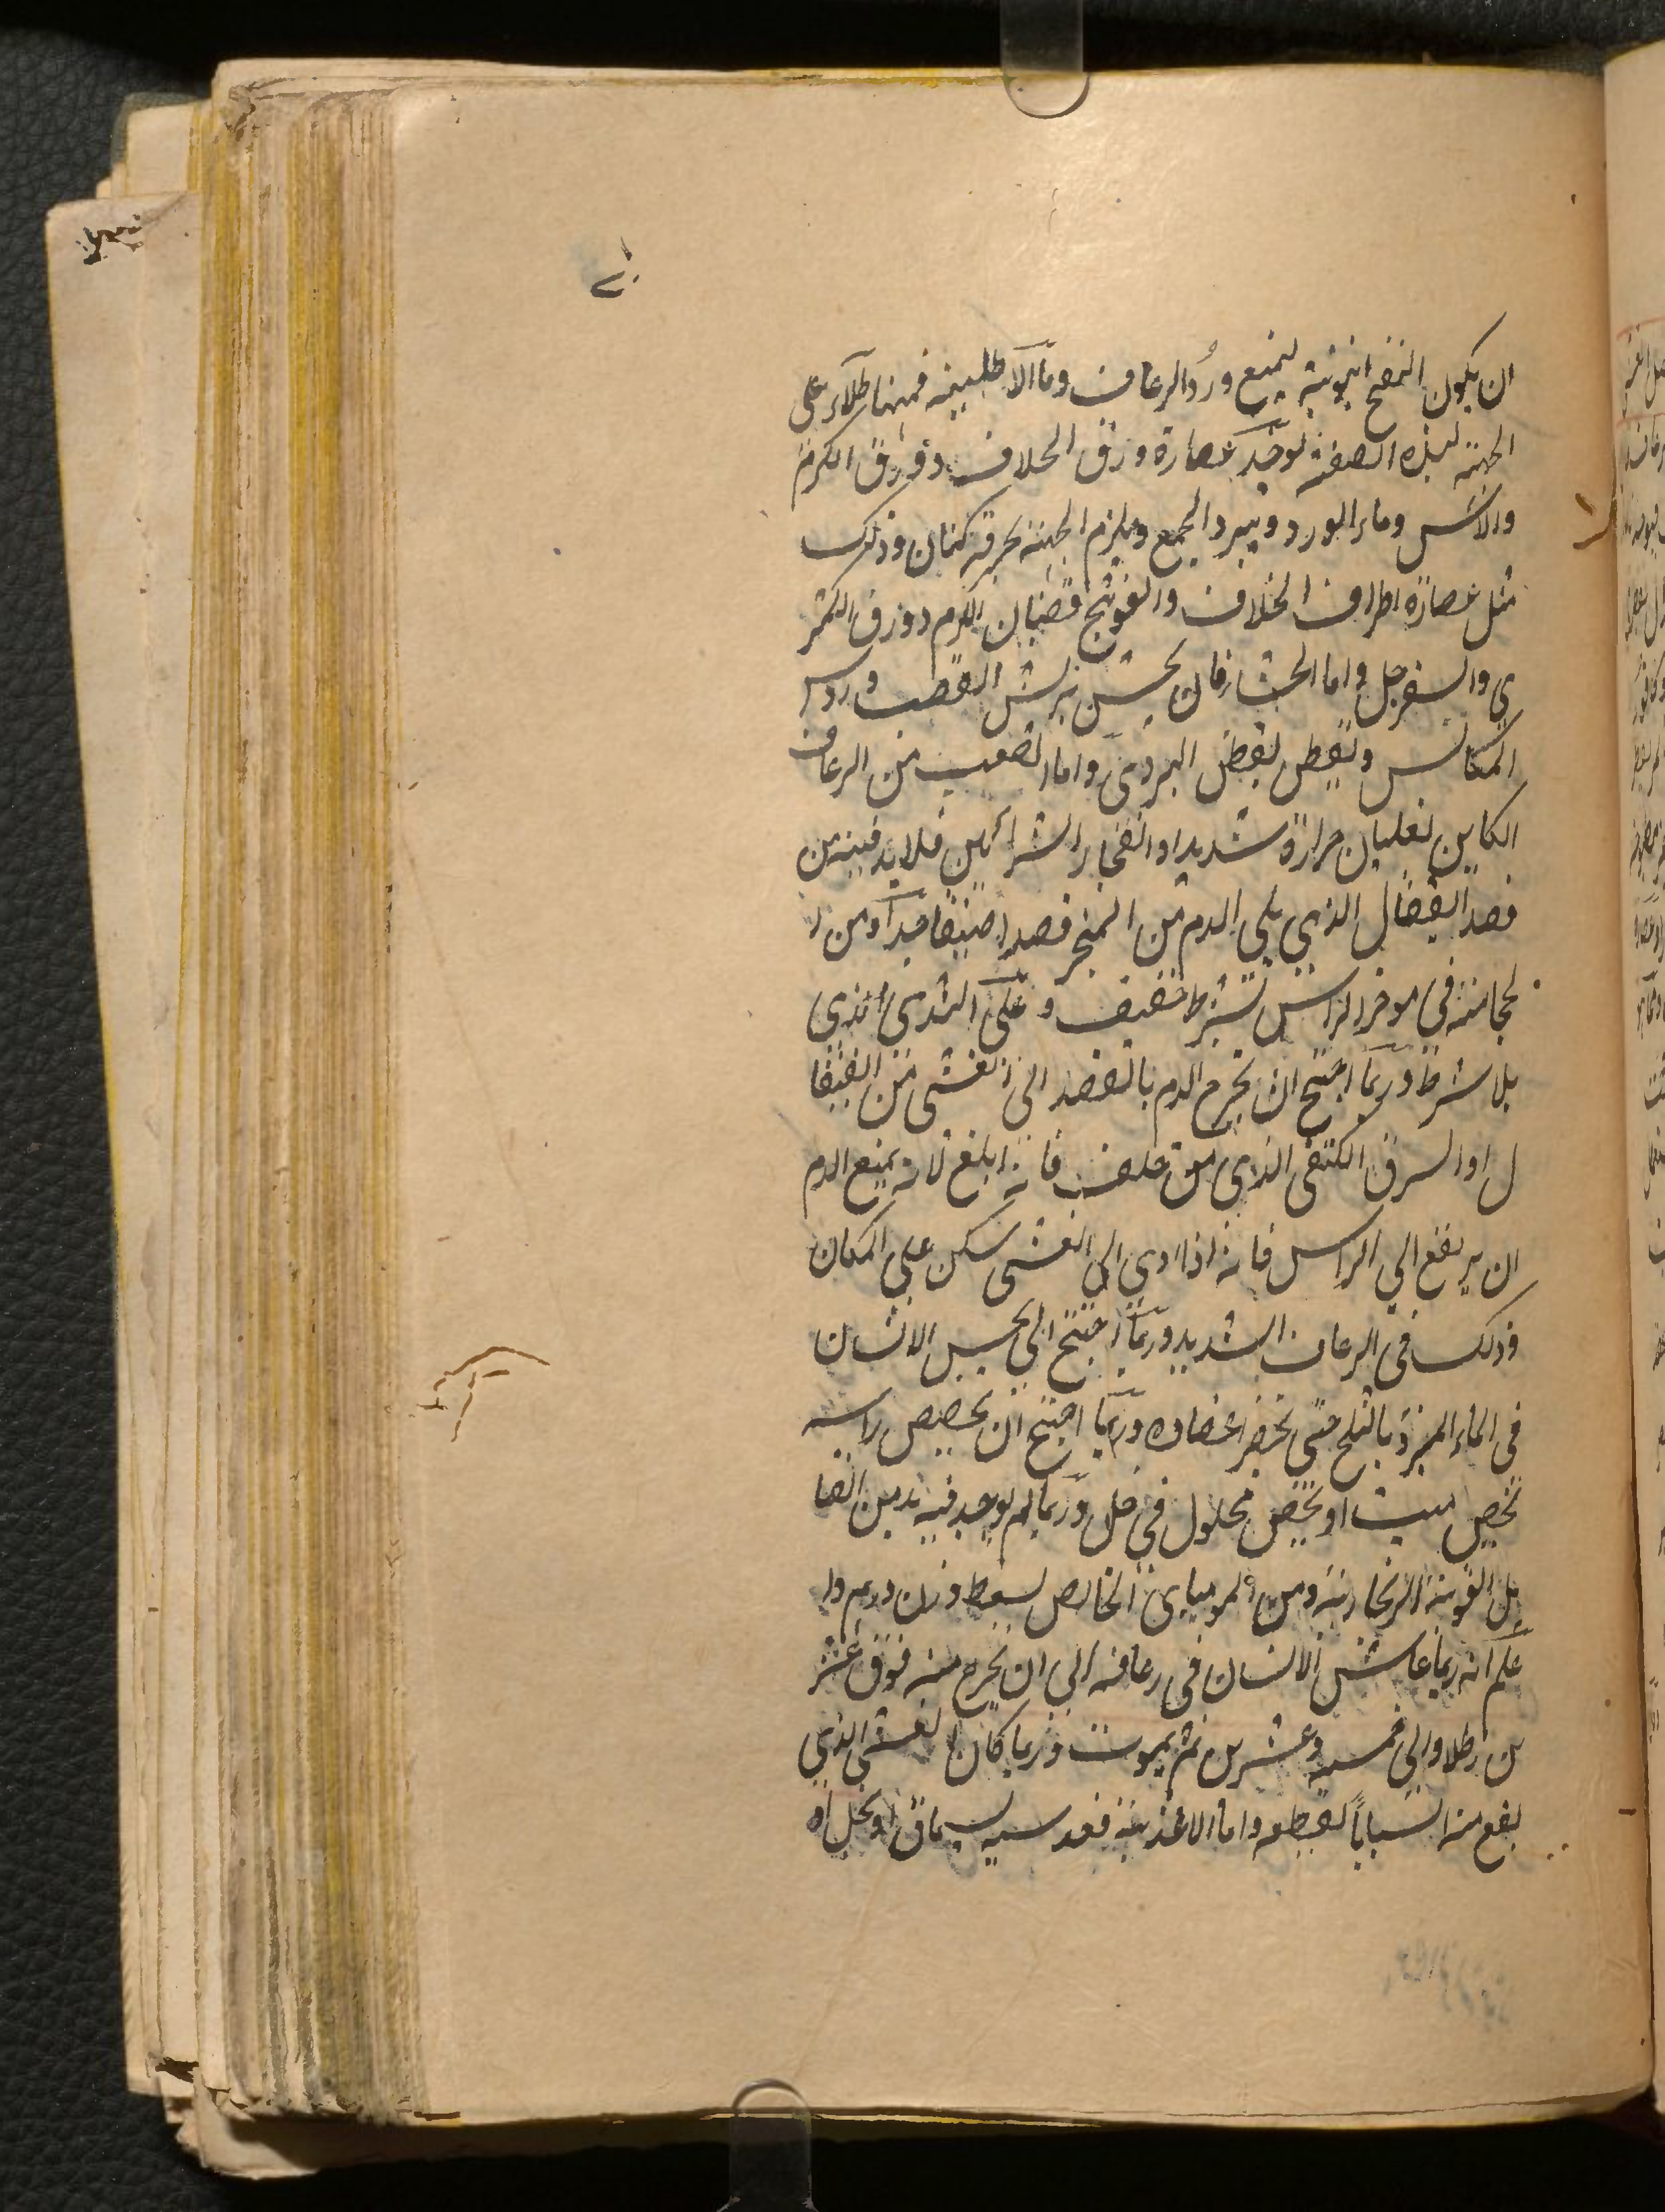 ان يكون النفخ انبوبة ليمنع ورد الرعاف واما الاطلبينه فمنها طلاء على
الجبهة لهذه الصفة يوخذ عصارة ورق الخلاف وورق الكرم
والاس وماء الورد ويبرد الجميع ويلزم الجبهة بخرقة كتان وذلك
مثل عصارة اطراف الخلاف والعوسج قضبان الكرم وورق الكمثر
ى والسفرجل واما الحشا فان يحشى بريش القصب وروس
المكانس وبقطن بقطن البردى واما الصعب من الرعاف
الكاين لغليان حرارة شديد او انفجار الشرائين فلا بد فيه من
فصد القيفال الذي يلي الدم من المنخر فصدا ضيقا جدا ومن ا
لحجامة في موخر الراس بشرط خفيف و على الثدى الذي
بلا شرط وربما احتيج ان يخرج الدم بالفصد الى الغشى من القيفا
ل او العرق الكتفى الذي من خلف فانه ابلغ لانه يمنع الدم
ان يرتفع الي الراس فانه اذا ادى الى الغشى سكن على المكان
وذلك في الرعاف الشديد وربما احتيج الى حبس الانسان
في الماء المبرد بالثلج حتى تخضر اعضاوه وربما احتيج ان يجصص راسه
بجص ميت او بجص محلول في خل وربما لم يوجد فيه بد من الفتا
يل القوية الزنجارية ومن المومياى الخالص يسعط وزن درهم وا
علم انه ربما عاش الانسان في رعافه الى ان يخرج منه فوق عشر
ين رطلا والى خمسة وعشرين ثم يموت وربما كان الغشى الذي
يقع منه اسبابا لقطعه واما الاغذية فعدسية بسماق او بخل او